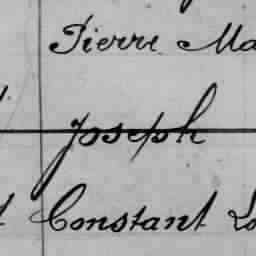 Pierre Ma
Joseph
t Constant Lo